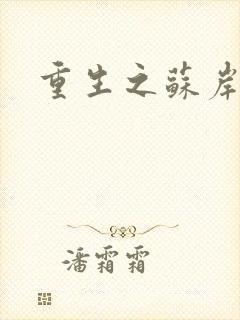 重生之蘇岸
潘霜霜